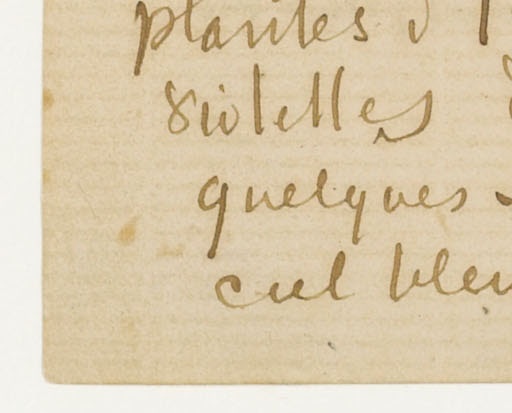 plantes d
violettes
quelques
ciel bleu